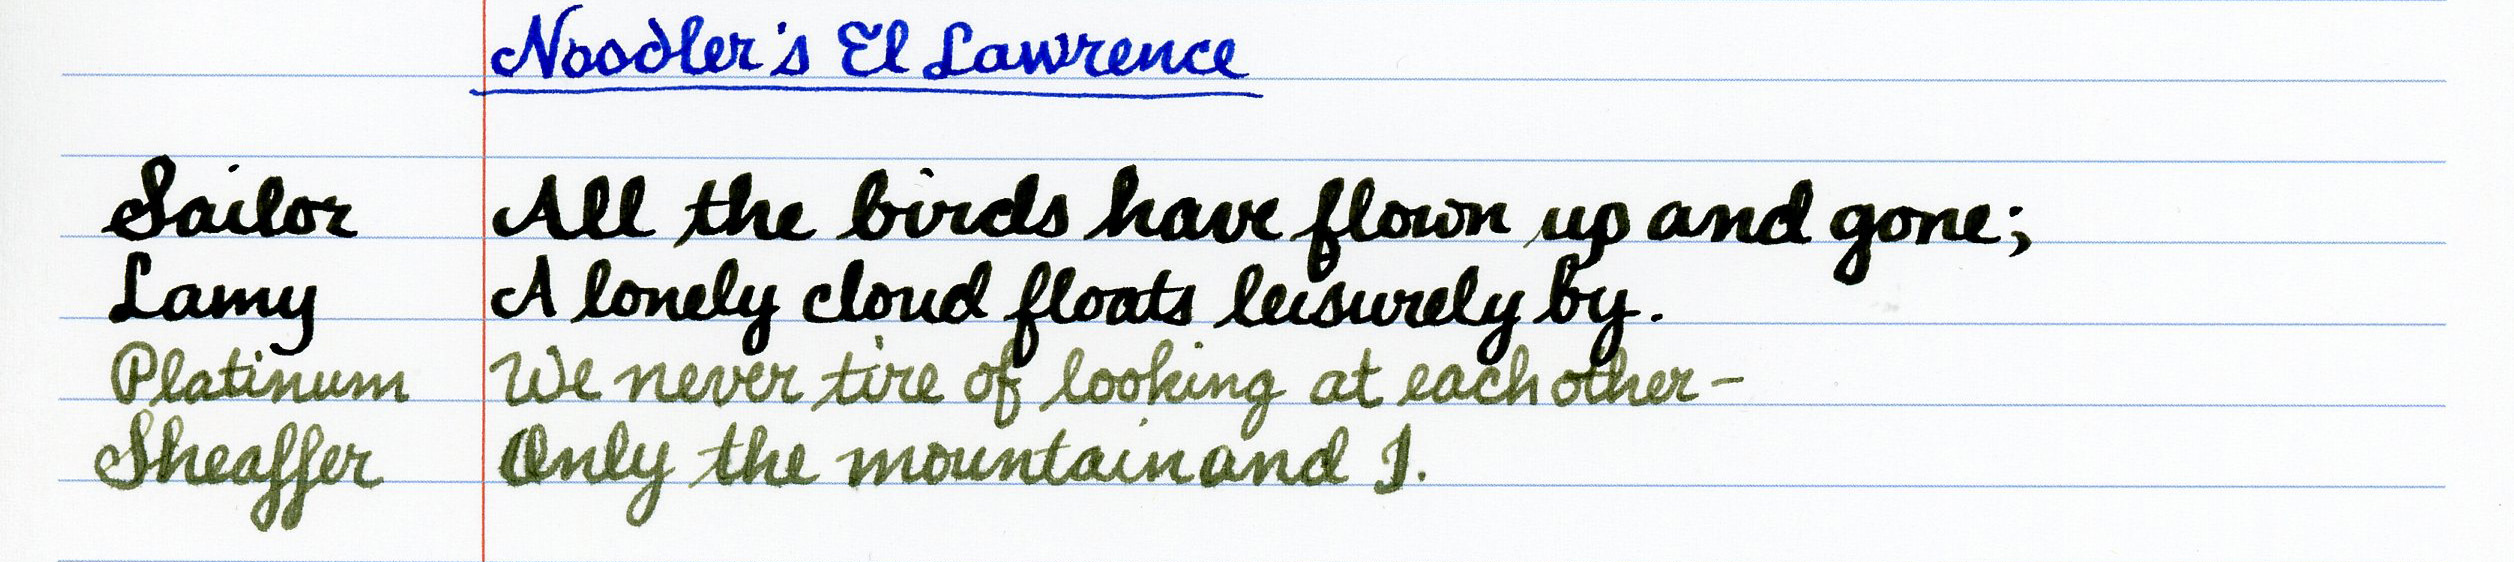 Noodler's El Lawrence
Sailor All the birds have flown up and gone;
Lamy A lonely cloud floats leisurely by.
Platinum We never tire of looking at each other-
Sheaffer Only the mountain and I.